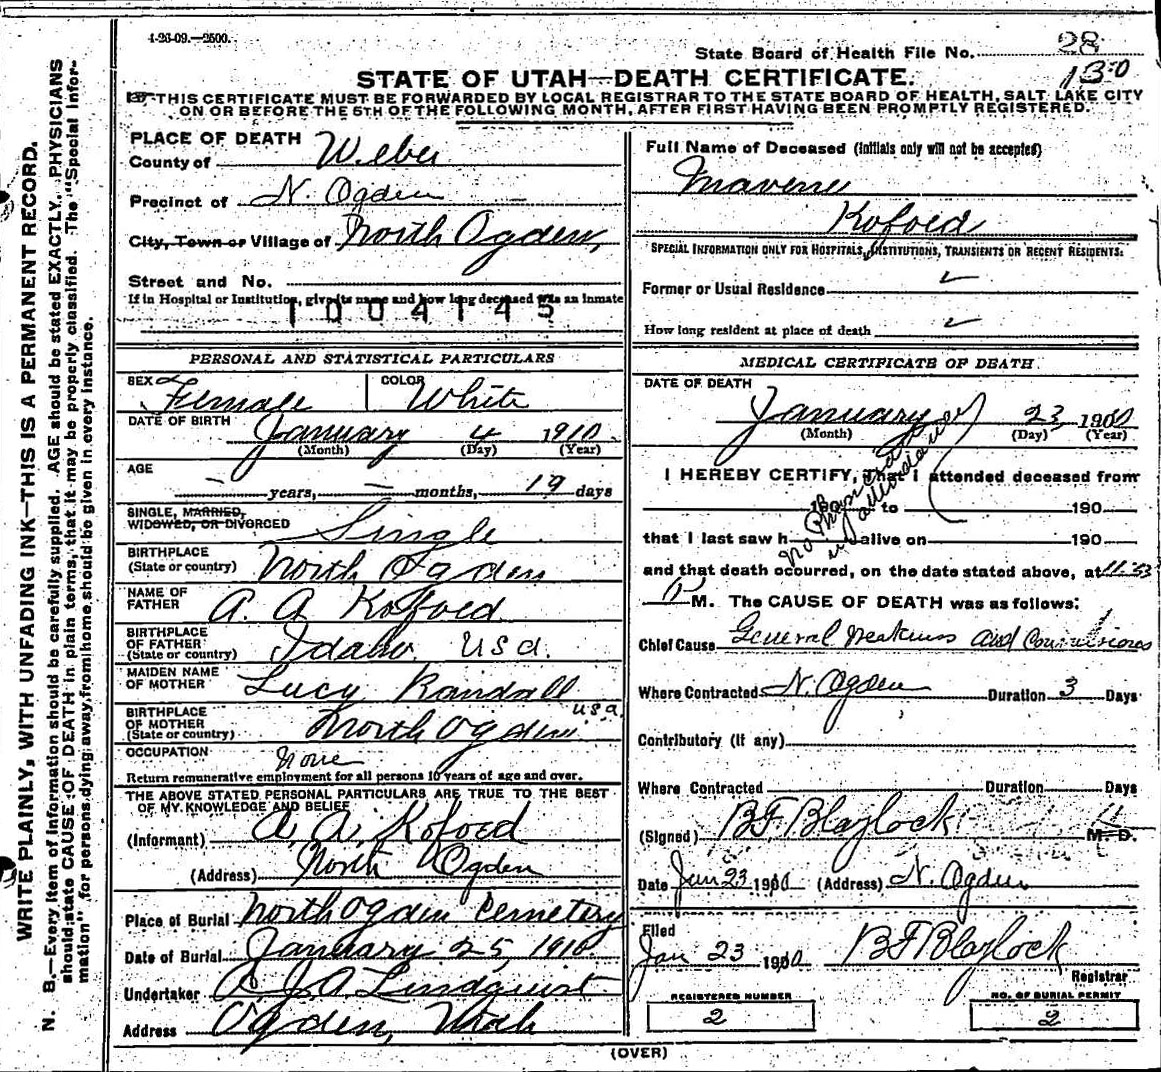 4-26-09.—2500.
State Board of Health File No. 28
130
STATE OF UTAH—DEATH CERTIFICATE.
THIS CERTIFICATE MUST BE FORWARDED BY LOCAL REGISTRAR TO THE STATE BOARD OF HEALTH, SALT LAKE CITY
ON OR BEFORE THE 5TH OF THE FOLLOWING MONTH, AFTER FIRST HAVING BEEN PROMPTLY REGISTERED.
WRITE PLAINLY, WITH UNFADING INK—THIS IS A PERMANENT RECORD.
N. B.—Every item of information should be carefully supplied. AGE should be stated EXACTLY. PHYSICIANS
should state CAUSE OF DEATH in plain terms, that it may be properly classified. The "Special Infor-
mation" for persons dying away from home should be given in every instance.
PLACE OF DEATH
County of Weber
Precinct of N. Ogden
City, Town or Village of North Ogden,
Street and No.
If in Hospital or Institution, give its name and how long deceased was an inmate
1004145
PERSONAL AND STATISTICAL PARTICULARS
SEX Female COLOR White
DATE OF BIRTH January 4 1910
(Month) (Day) (Year)
AGE
— years, — months, 19 days
SINGLE, MARRIED,
WIDOWED, OR DIVORCED Single
BIRTHPLACE
(State or country) North Ogden
NAME OF
FATHER A. A. Kofoed
BIRTHPLACE
OF FATHER
(State or country) Idaho. USA.
MAIDEN NAME
OF MOTHER Lucy Randall
BIRTHPLACE
OF MOTHER
(State or country) North Ogden USA
OCCUPATION None
Return remunerative employment for all persons 10 years of age and over.
THE ABOVE STATED PERSONAL PARTICULARS ARE TRUE TO THE BEST
OF MY KNOWLEDGE AND BELIEF
(Informant) A. A. Kofoed
(Address) North Ogden
Place of Burial North Ogden Cemetery
Date of Burial January 25, 1910.
Undertaker Lindquist
Address Ogden, Utah
Full Name of Deceased (initials only will not be accepted)
Maverne
Kofoed
SPECIAL INFORMATION ONLY FOR HOSPITALS, INSTITUTIONS, TRANSIENTS OR RECENT RESIDENTS:
Former or Usual Residence
How long resident at place of death
MEDICAL CERTIFICATE OF DEATH.
DATE OF DEATH
January 23 1910
(Month) (Day) (Year)
I HEREBY CERTIFY, That I attended deceased from
190 to 190
that I last saw h alive on 190
no Physician in attendance
and that death occurred, on the date stated above, at
M. The CAUSE OF DEATH was as follows:
Chief Cause General Weakness and Convulsions
Where Contracted N. Ogden Duration 3 Days
Contributory (if any)
Where Contracted Duration Days
(Signed) BF Blaylock M. D.
Date Jan 23 1910 (Address) N. Ogden
Filed
Jan 23 1910 BF Blaylock
Registrar
REGISTERED NUMBER
2
NO. OF BURIAL PERMIT
2
(OVER)